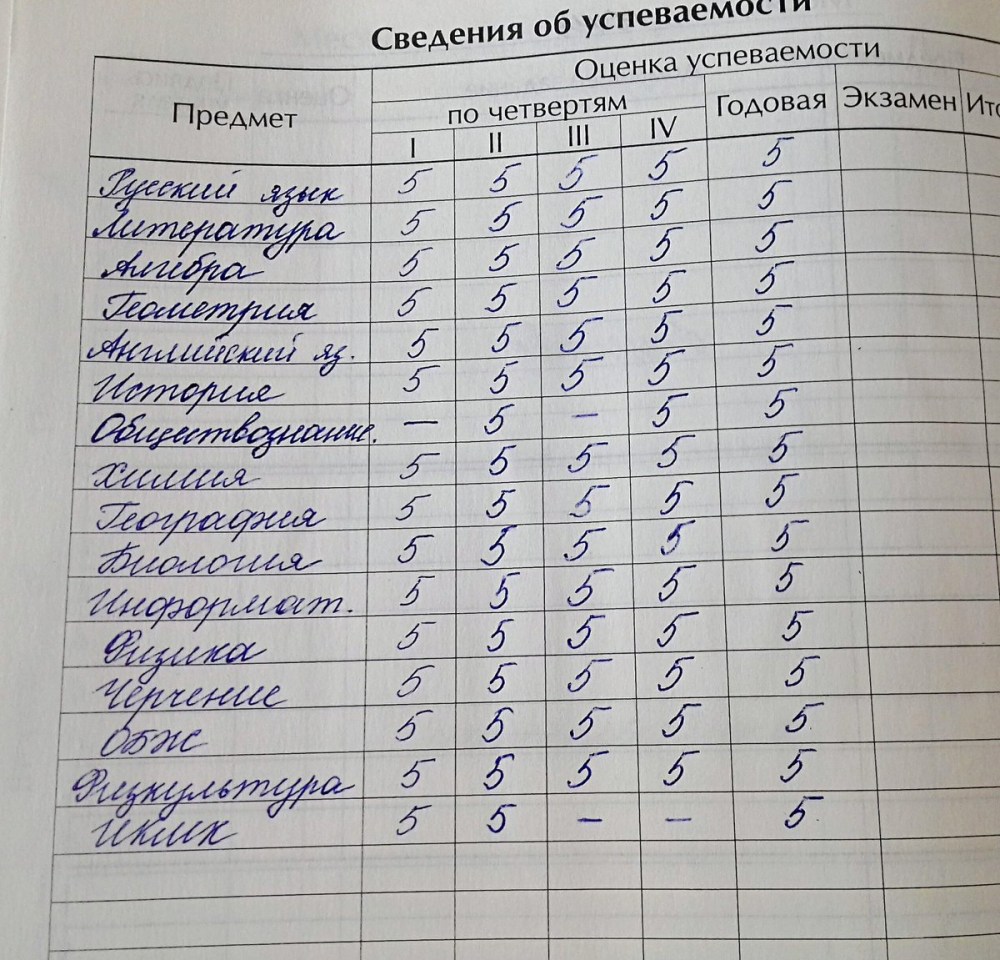 Сведения об успеваемости
Предмет
Оценка успеваемости
по четвертям
Годовая Экзамен
I II III IV
Русский язык 5 5 5 5 5
Литература 5 5 5 5 5
Алгебра 5 5 5 5 5
Геометрия 5 5 5 5 5
Английский яз. 5 5 5 5 5
История 5 5 5 5 5
Обществознание. — 5 — 5 5
Химия 5 5 5 5 5
География 5 5 5 5 5
Биология 5 5 5 5 5
Информат. 5 5 5 5 5
Физика 5 5 5 5 5
Черчение 5 5 5 5 5
ОБЖ 5 5 5 5 5
Физкультура 5 5 5 5 5
ИКИК 5 5 — — 5